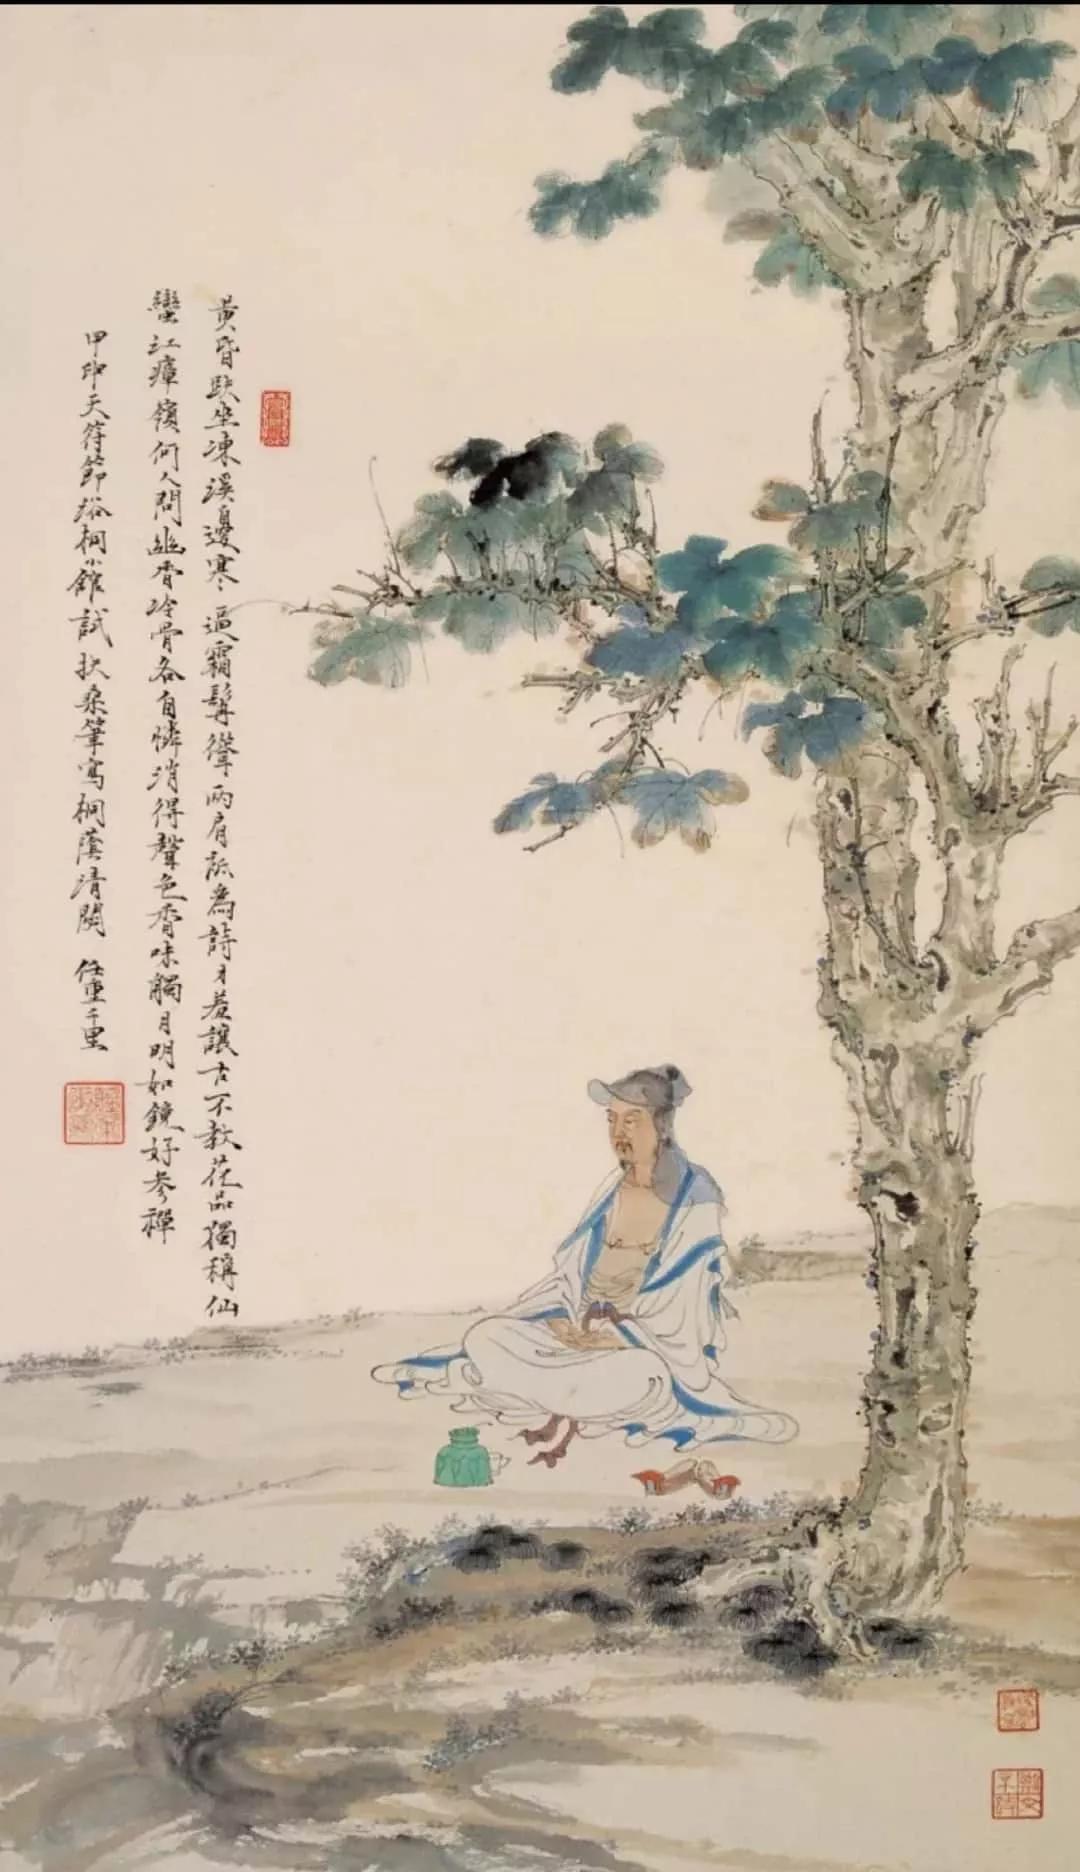 黄昏趺坐凍溪邊寒逼霜髯聳兩肩祇為詩才羞讓古不教花品獨稱仙
蠻江瘴嶺何人問幽香冷骨各自憐消得聲色香味觸月明如鏡好參禪
甲申天符節浴桐小館試扶桑筆寫桐蔭清 千里